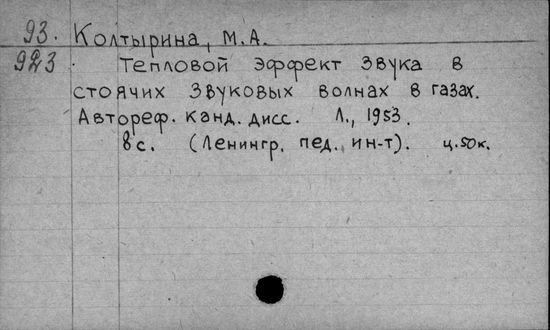 93. Колтырина, М.А.
923. Тепловой эффект звука в
стоячих звуковых волнах в газах.
Автореф. канд. дисс. Л., 1953.
8с. (Ленингр. пед. ин-т). ц.50к.